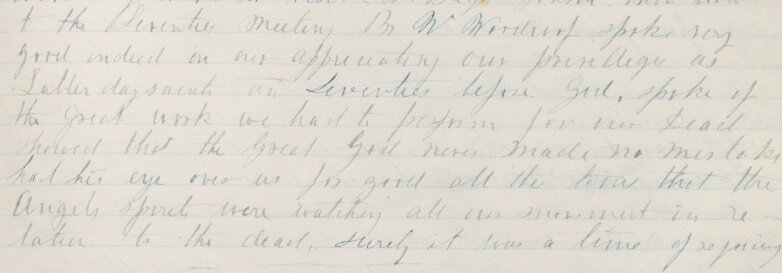 t the Seventies Meeting Br W Woodruf spoke very
good indeed in our appreciating our privelleges as
Latter day saints an Seventies before God, spoke of
the Great work we had to perform for our Dead
showed that the Great God never made no mistake
had his eye over us for good all the time that the
Angels spirits were watching all our movment in re-
lation to the dead, surely it was a time of rejoicing